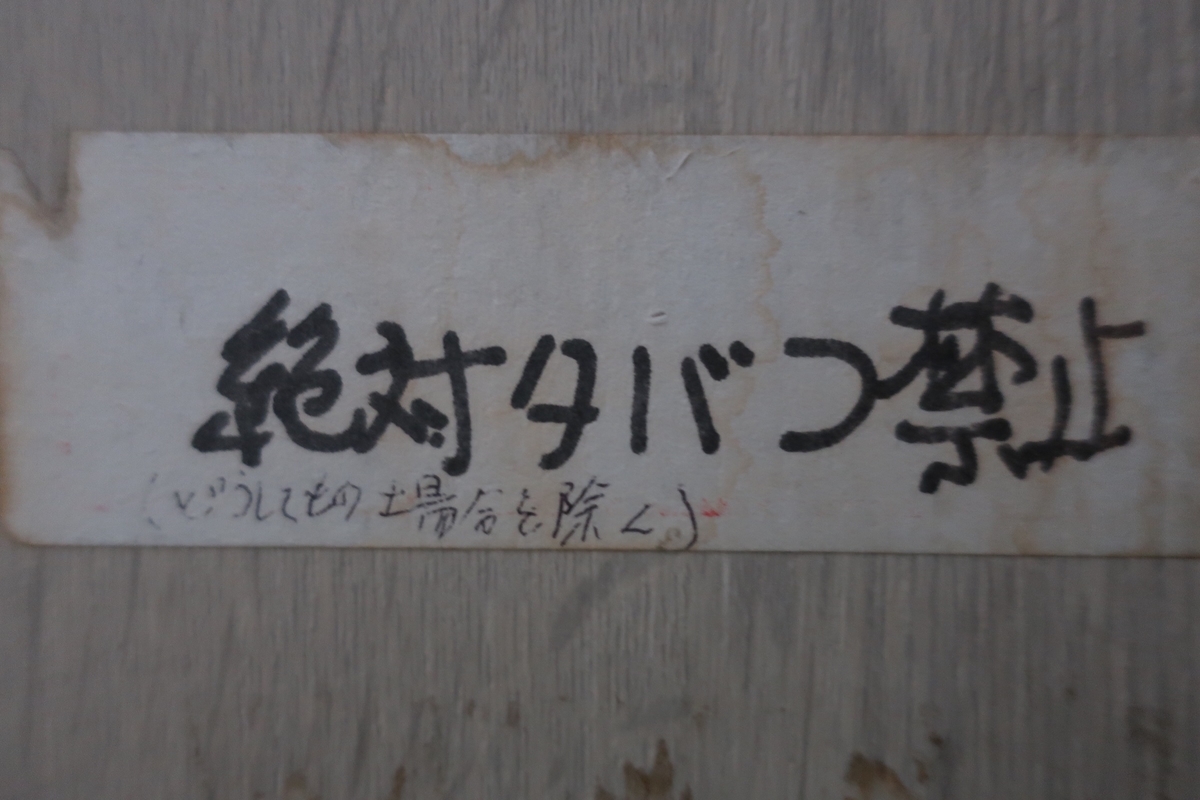 絶対タバコ禁止
(どうしてもの場合を除く)